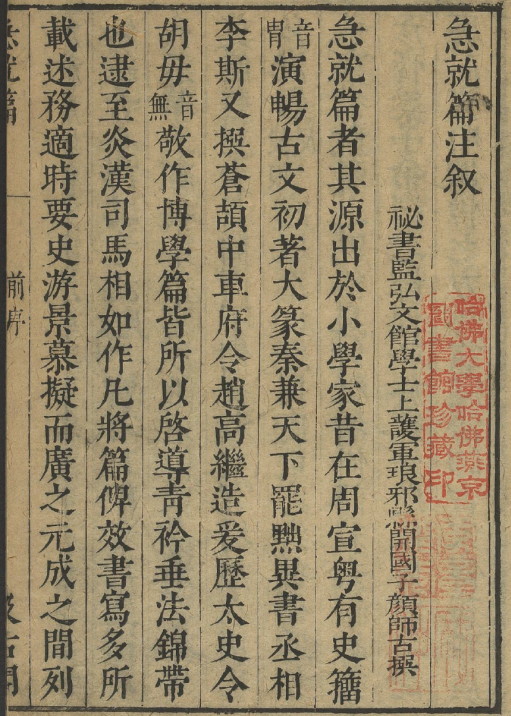 急就篇注叙
祕書監弘文館學士上護軍琅邪縣開國子顔師古撰
急就篇者其源出於小學家昔在周宣粤有史籀
音胄演暢古文初著大篆秦兼天下罷黜異書丞相
李斯又撰蒼頡中車府令趙高繼造爰歷太史令
胡毋音無敬作博學篇皆所以啓導青衿垂法錦帶
也逮至炎漢司馬相如作凡將篇俾效書寫多所
載述務適時要史游景慕擬而廣之元成之間列
急就篇
前序
汲古閣
哈佛大學哈佛燕京
圖書館珍藏印